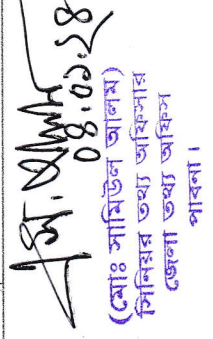 ০৪.০১.২৪
(মোঃ সামিউল আলম)
সিনিয়র তথ্য অফিসার
জেলা তথ্য অফিস
পাবনা।